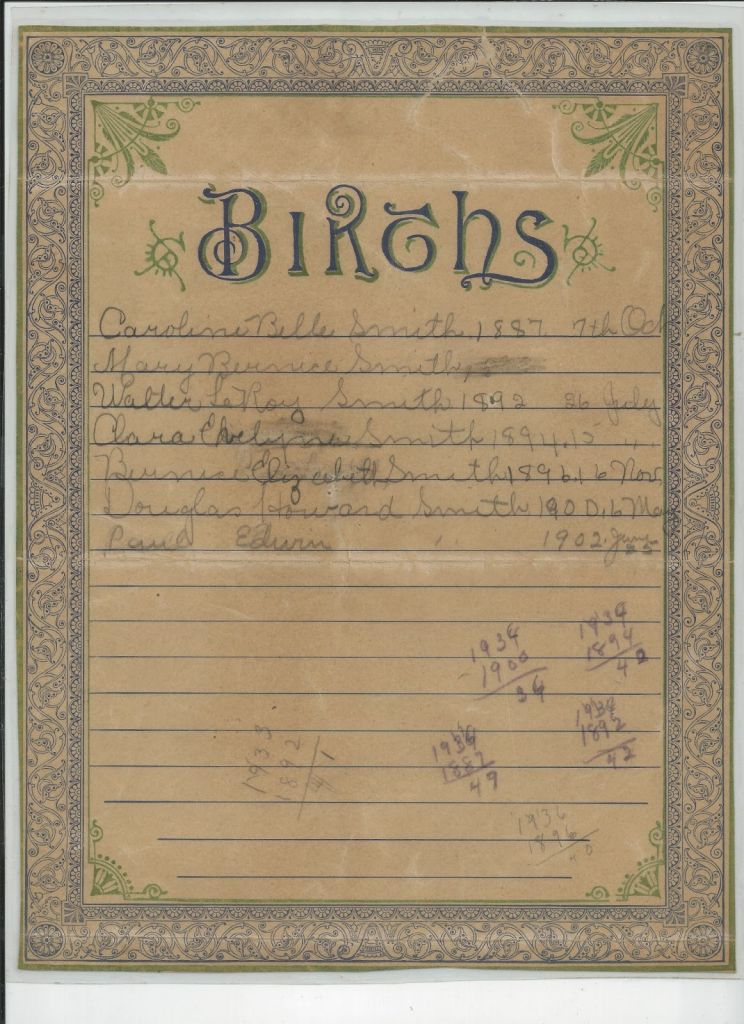 BIRTHS
Caroline Belle Smith 1887 7th Oct
Mary Bernice Smith
Walter LeRoy Smith 1892 26 July
Clara Smith 1894.15 " "
Bernice Elizabeth Smith 1896.16 Nov
Douglas Howard Smith 1900.6 May
Paul Edwin " 1902. June
1934
1894
1900
42
1892
42
1933
1892
41
1887
49
1936
1896